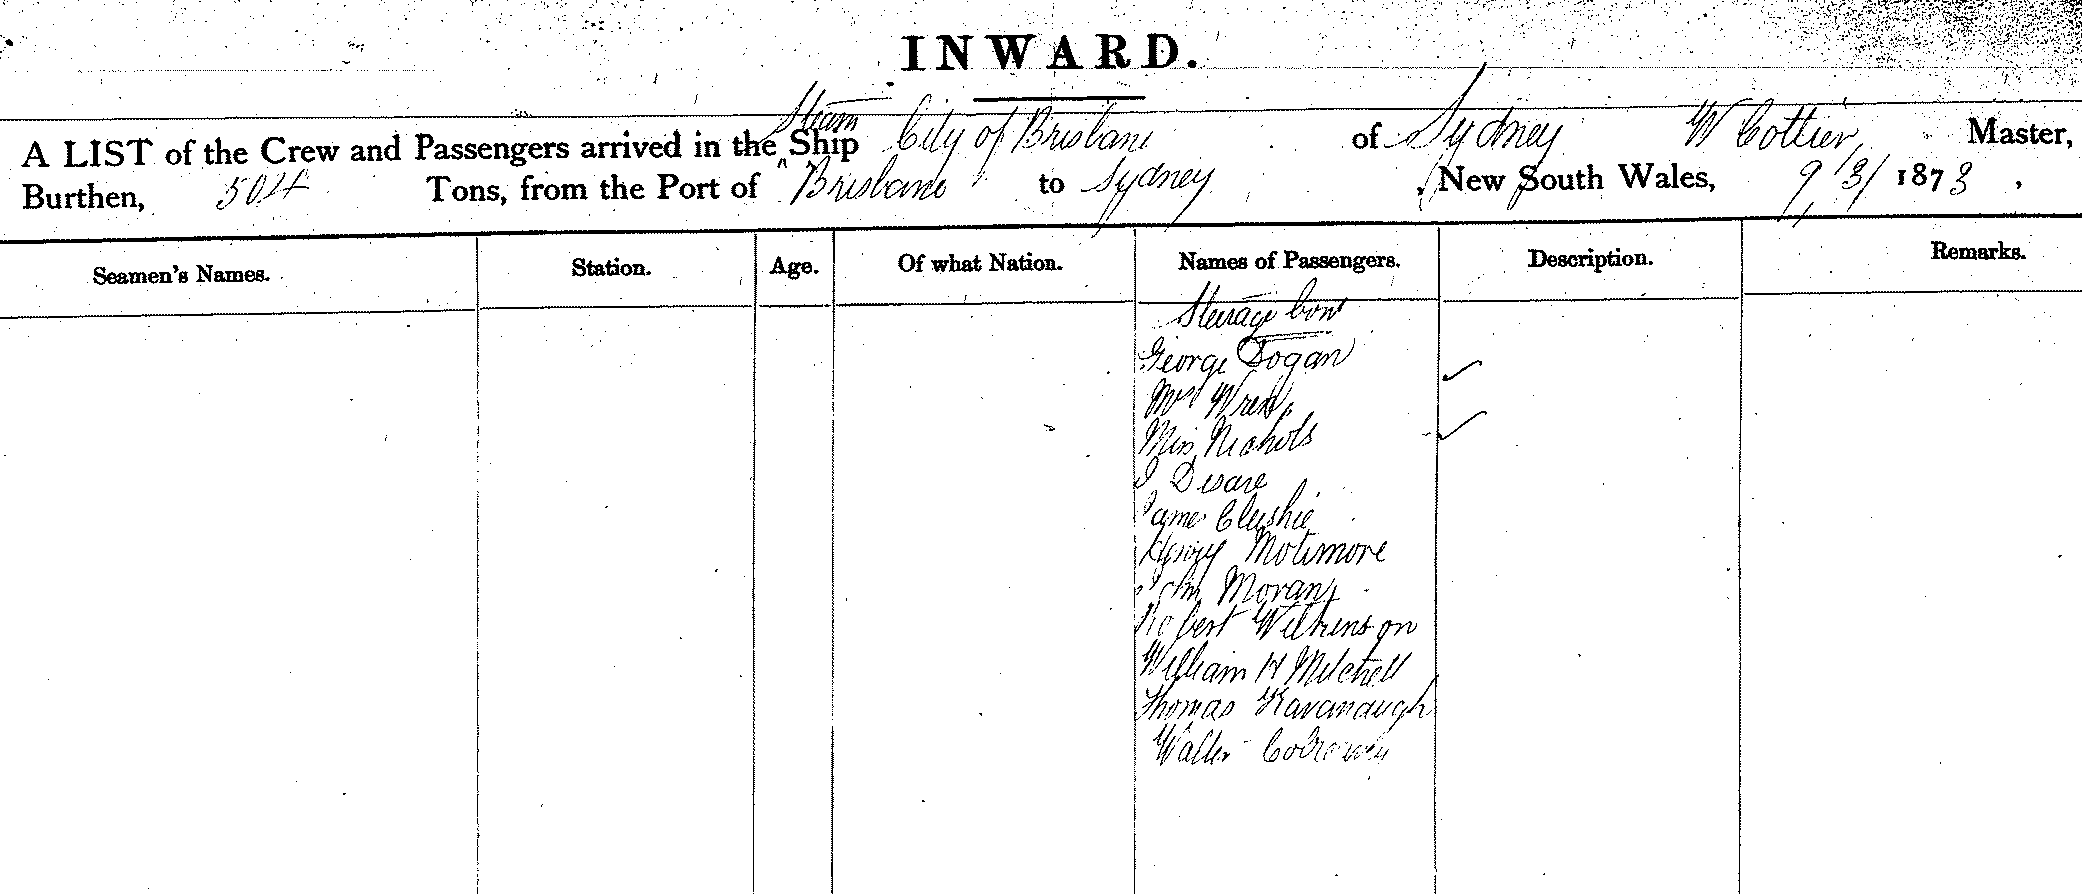 INWARD.
A LIST of the Crew and Passengers arrived in the Steam Ship City of Brisbane of Sydney W Cottier, Master,
Burthen, 504 Tons, from the Port of Brisbane to Sydney, New South Wales, 9/3/1873,
Seamen's Names. Station. Age. Of what Nation. Names of Passengers. Description. Remarks.
Steerage
George Dogan
Mrs Wren
Miss Nichols
J
James Clushie
Henry Motimore
John Moran
Robert Wilkinson
William H Mitchell
Thomas Kavanaugh
Walter